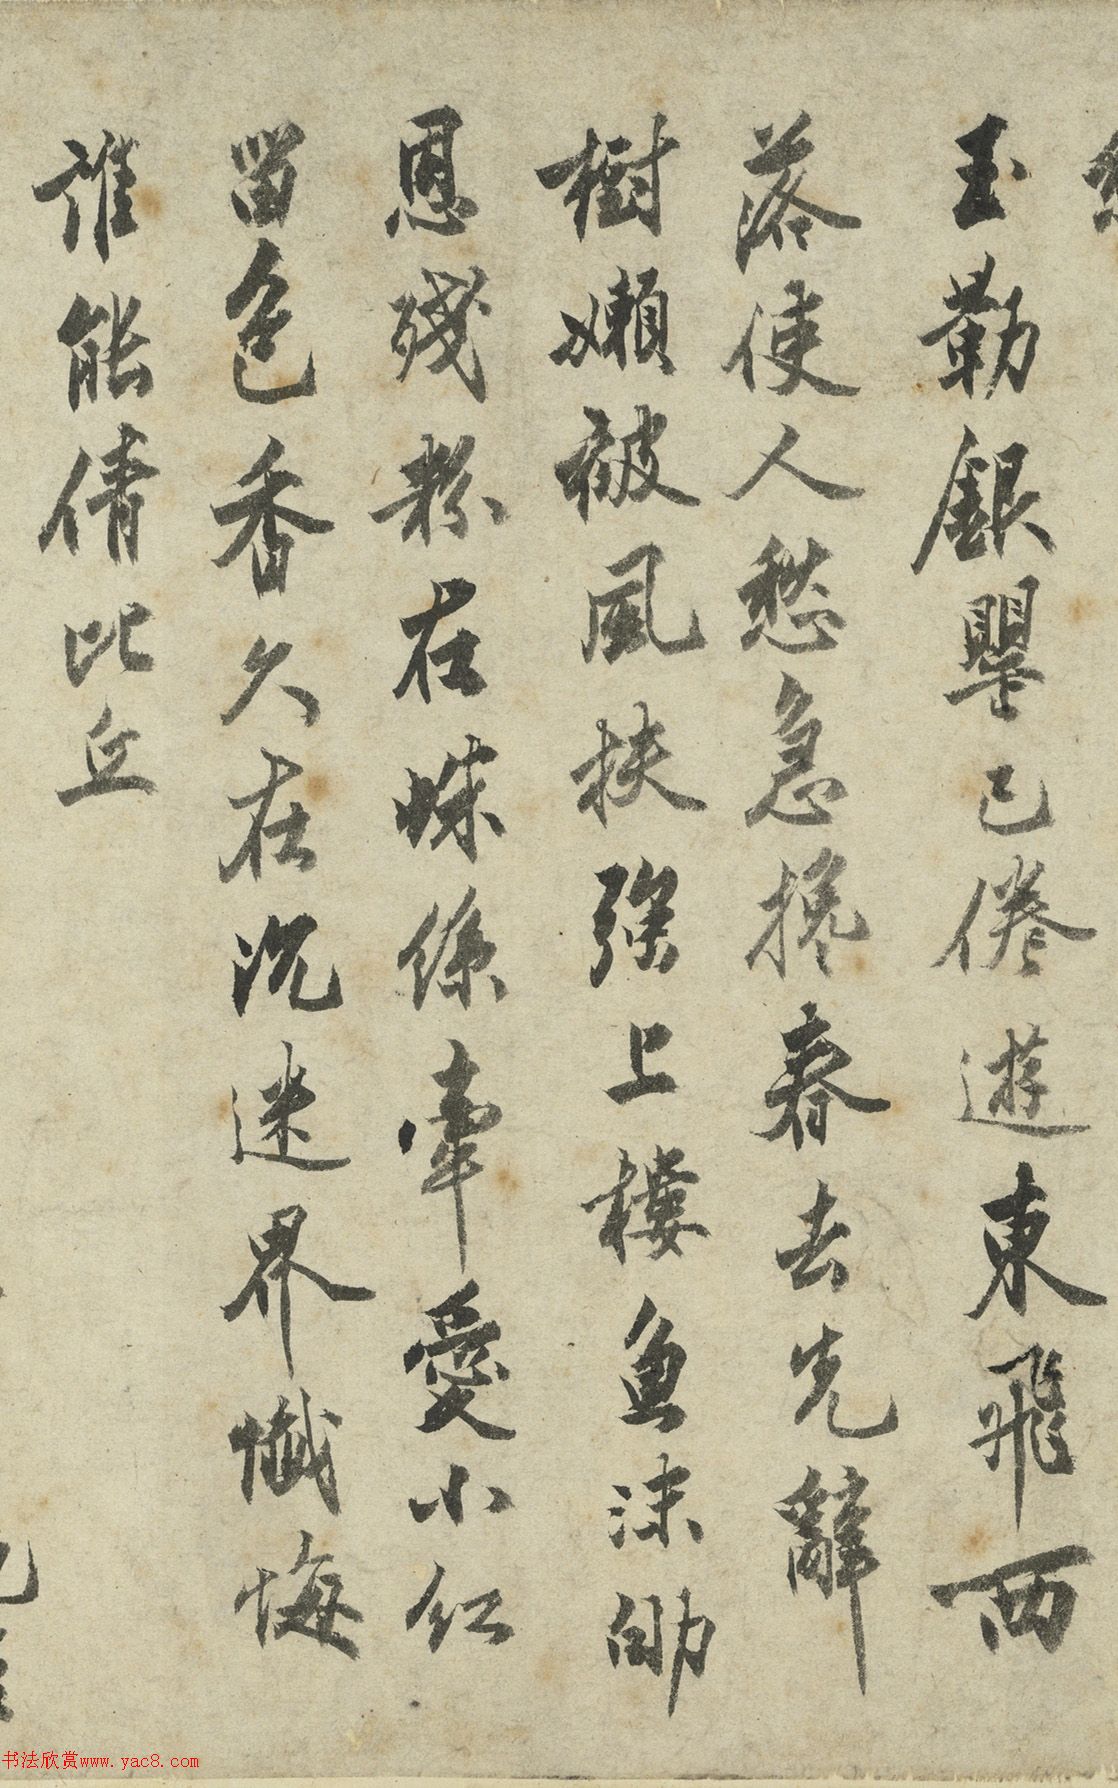 玉勒銀罌已倦遊東飛西
落使人愁急攙春去先辭
樹懶被風扶強上樓魚沫劬
恩殘粉在蛛絲牽愛小紅
留色香久在沉迷界懺悔
誰能倩比丘
书法欣赏www.yac8.com